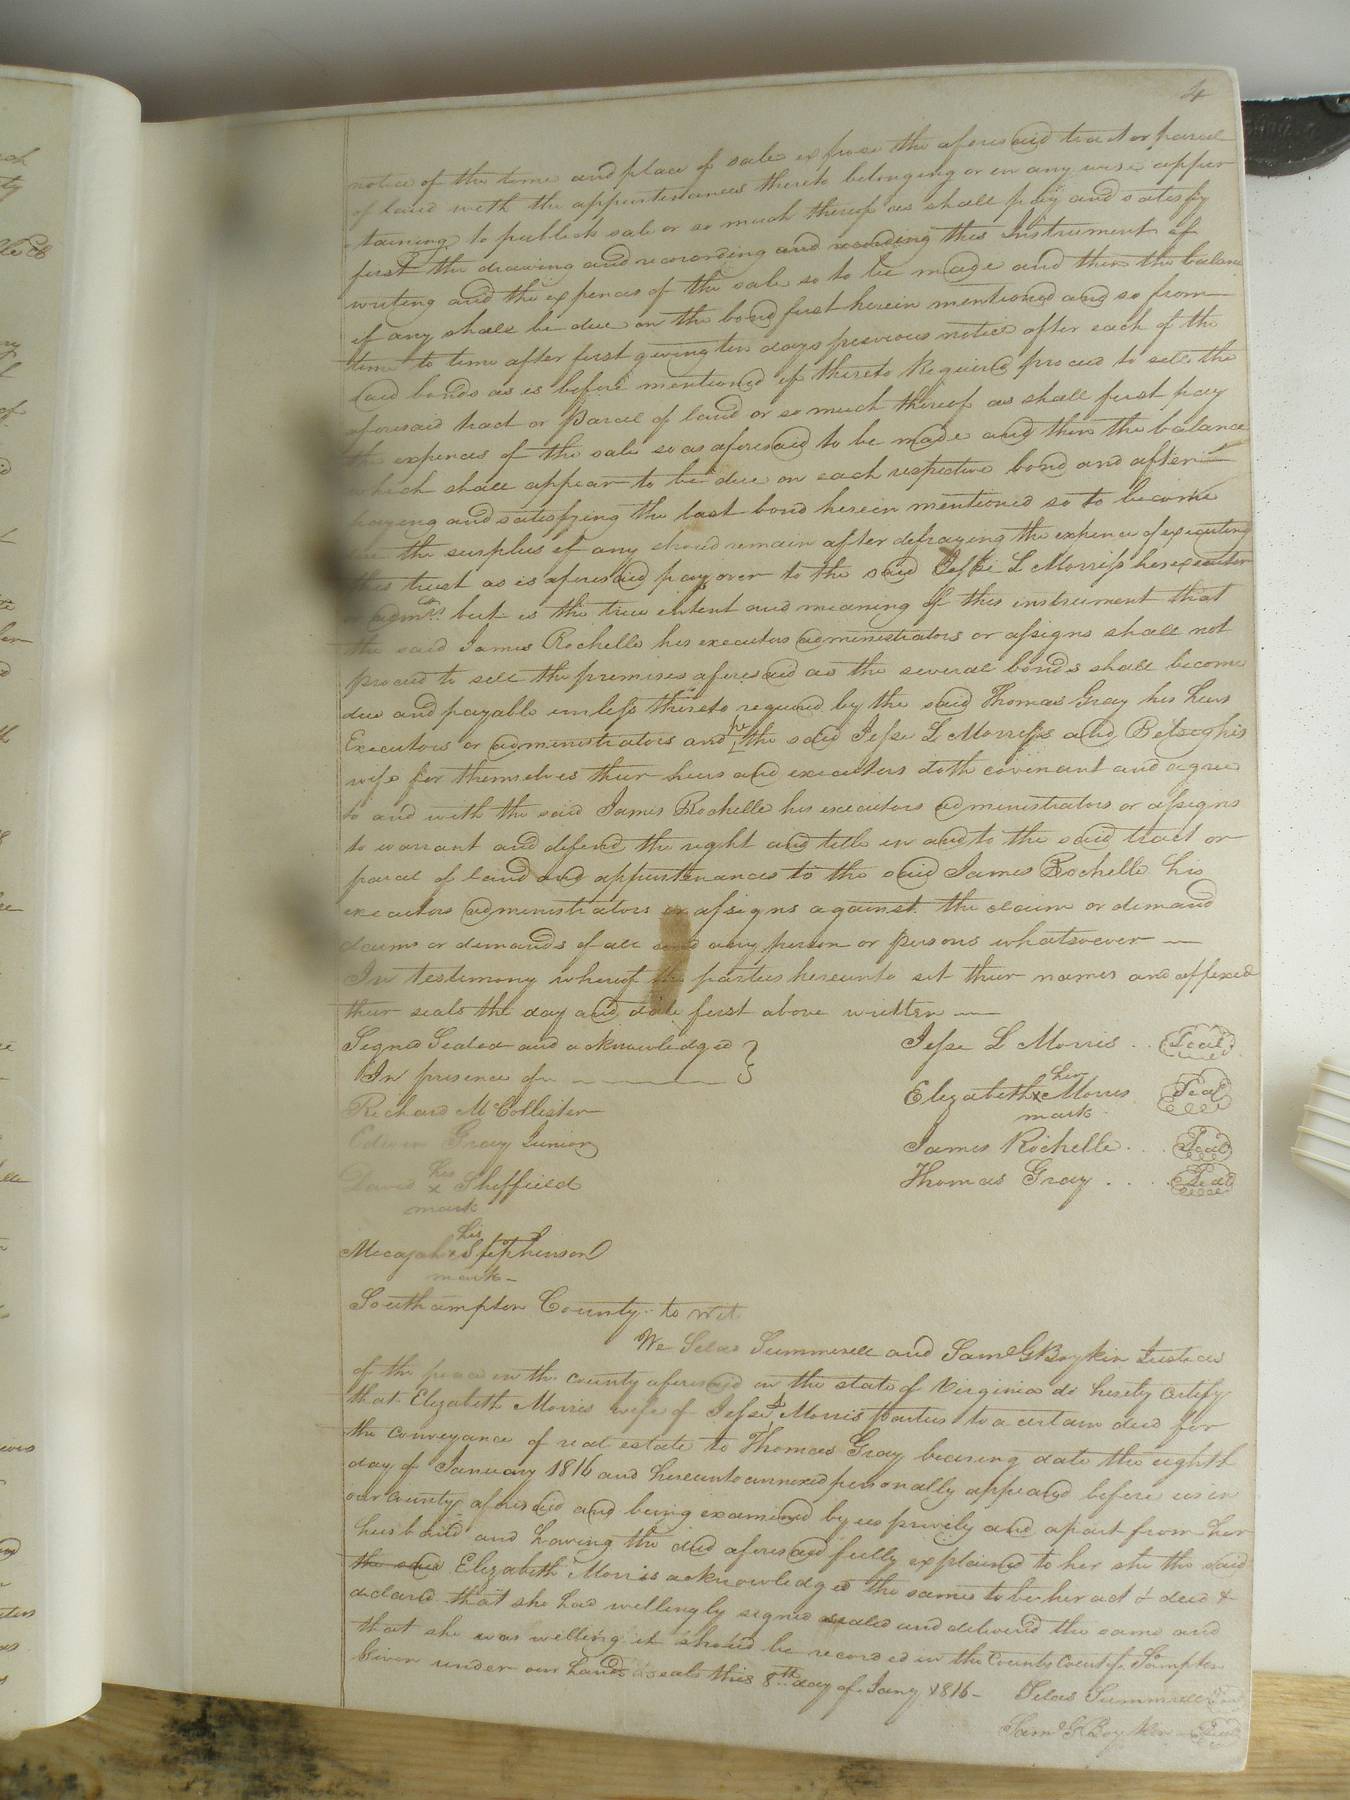 4
notice of the time and place of sale expose the aforesaid tract or parcel
of land with the appurtenances thereto belonging or in any wise apper
taining to publick sale or so much thereof as shall pay and satisfy
first the drawing and recording and recording this Instrument of
writing and the expences of the sale so to be made and then the balance
if any shall be due on the bond first herein mentioned and so from
time to time after first giving ten days previous notice after each of the
said bonds as is before mentioned if thereto Required proceed to sell the
aforesaid tract or parcel of land or so much thereof as shall first pay
the expences of the sale so as aforesaid to be made and then the balance
which shall appear to be due on each respective bond and after
paying and satisfying the last bond herein mentioned so to become
due the surplus if any should remain after defraying the expence of executing
this trust as is aforesaid pay over to the said Jesse L Morriss his executors
or admrs but is the true intent and meaning of this instrument that
the said James Rochelle his executors administrators or assigns shall not
proceed to sell the premises aforesaid as the several bonds shall become
due and payable unless thereto required by the said Thomas Gray his heirs
Executors or administrators and he the said Jesse L Morriss and Betsey his
wife for themselves their heirs and executors doth covenant and agree
to and with the said James Rochelle his executors administrators or assigns
to warrant and defend the right and title in and to the said tract or
parcel of land and appurtenances to the said James Rochelle his
executors administrators or assigns against the claim or demand
claims or demands of all and any person or persons whatsoever —
In testimony whereof the parties hereunto set their names and affixed
their seals the day and date first above written —
Signed Sealed and acknowledged } Jesse L Morris . . Seal
In presence of Elizabeth her x mark Morris Seal
Richard McCollister
Edwin Gray Junior James Rochelle . . . Seal
David his x mark Sheffield Thomas Gray . . . . Seal
Micajah his x mark Stephenson
Southampton County to wit
We Silas Summerell and Saml G Boykin Justices
of the peace in the county aforesaid in the state of Virginia do hereby certify
that Elizabeth Morris wife of Jesse L Morris parties to a certain deed for
the conveyance of real estate to Thomas Gray bearing date the eighth
day of January 1816 and hereunto annexed personally appeared before us in
our county aforesaid and being examined by us privily and apart from her
husband and having the deed aforesaid fully explained to her she the said
the said Elizabeth Morris acknowledged the same to be her act & deed &
declared that she had willingly signed sealed and delivered the same and
that she was willing it should be recorded in the County Court of Sohampton
Given under our hands & seals this 8th day of Jany 1816 - Silas Summerell Seal
Saml G Boykin Seal